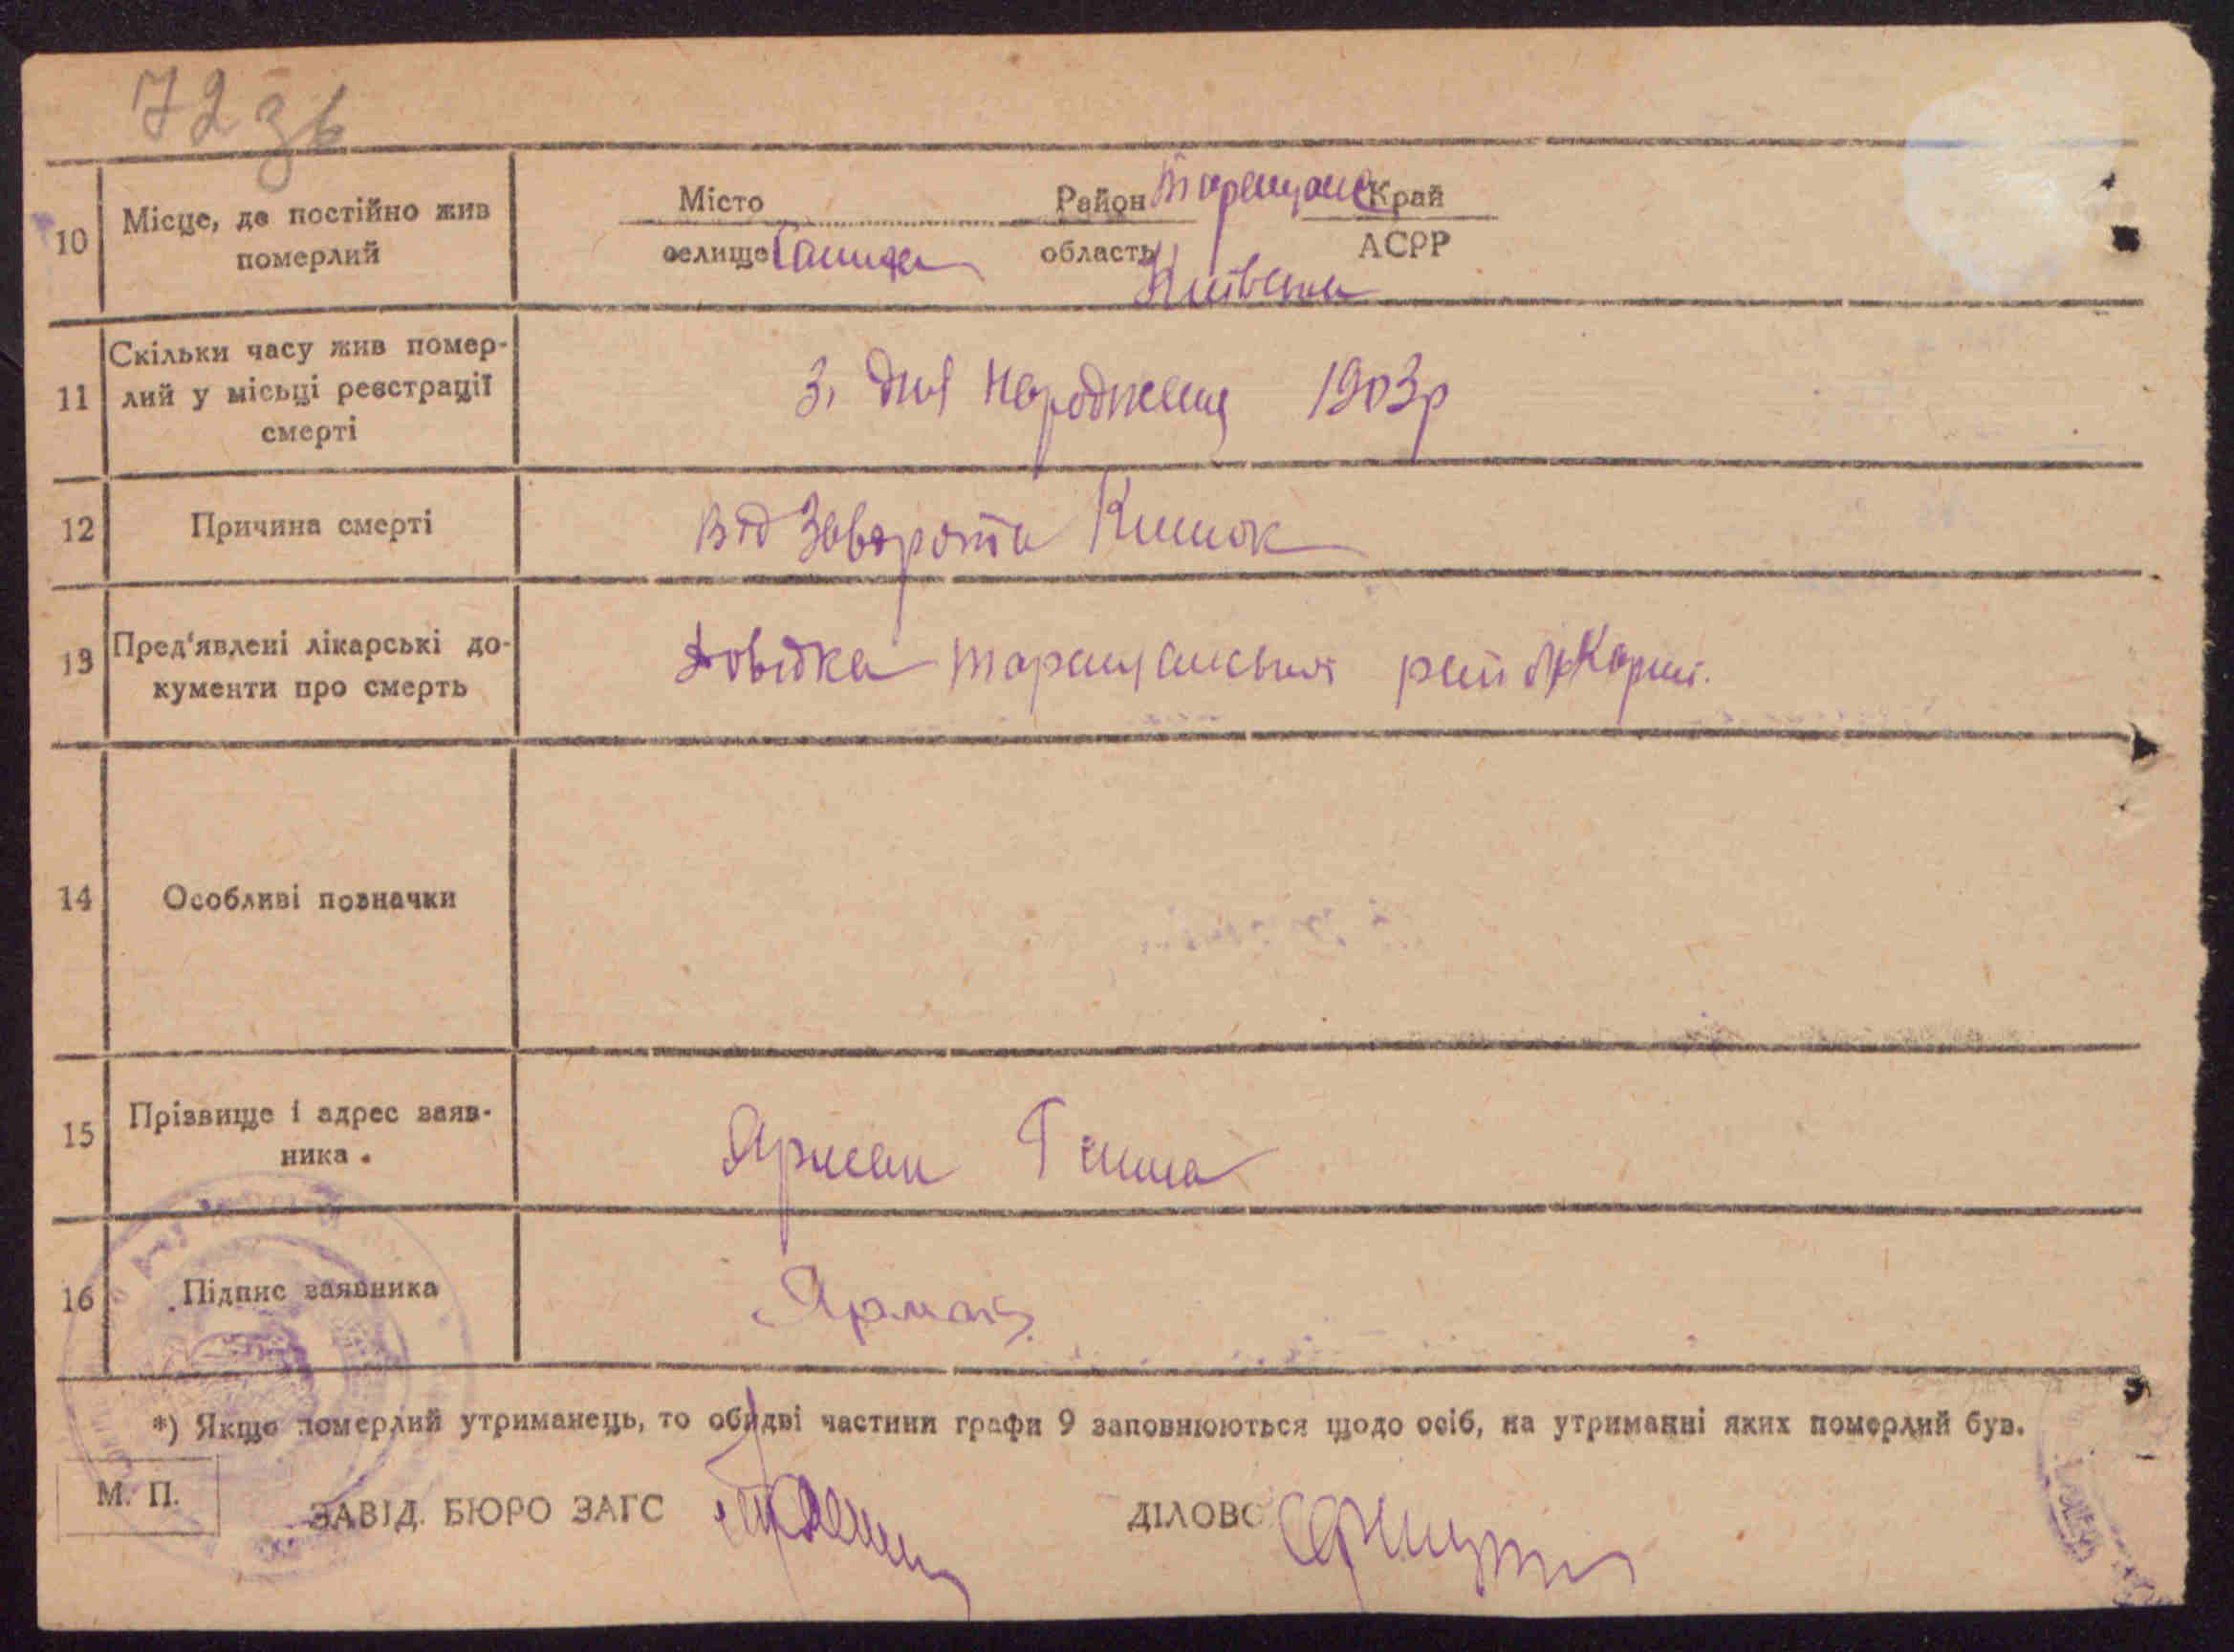 72 зв
10 Місце, де постійно жив померлий
Місто Район Таращанс Край
селище області Київська АСРР
11 Скільки часу жив помер-
лий у місьці реєстрації
смерті
З. дня народження 1903р
12 Причина смерті від Заворота Кишок
13 Пред'явлені лікарські до-
кументи про смерть
Довідка Таращанської рай
14 Особливі позначки
15 Прізвище і адрес заяв-
ника.
Ярмак Ганна
16 Підпис заявника
*) Якщо померлий утриманець, то обидві частини графи 9 заповнюються щодо осіб, на утриманні яких померлий був.
М. П.
ЗАВІД. БЮРО ЗАГС ДІЛОВО